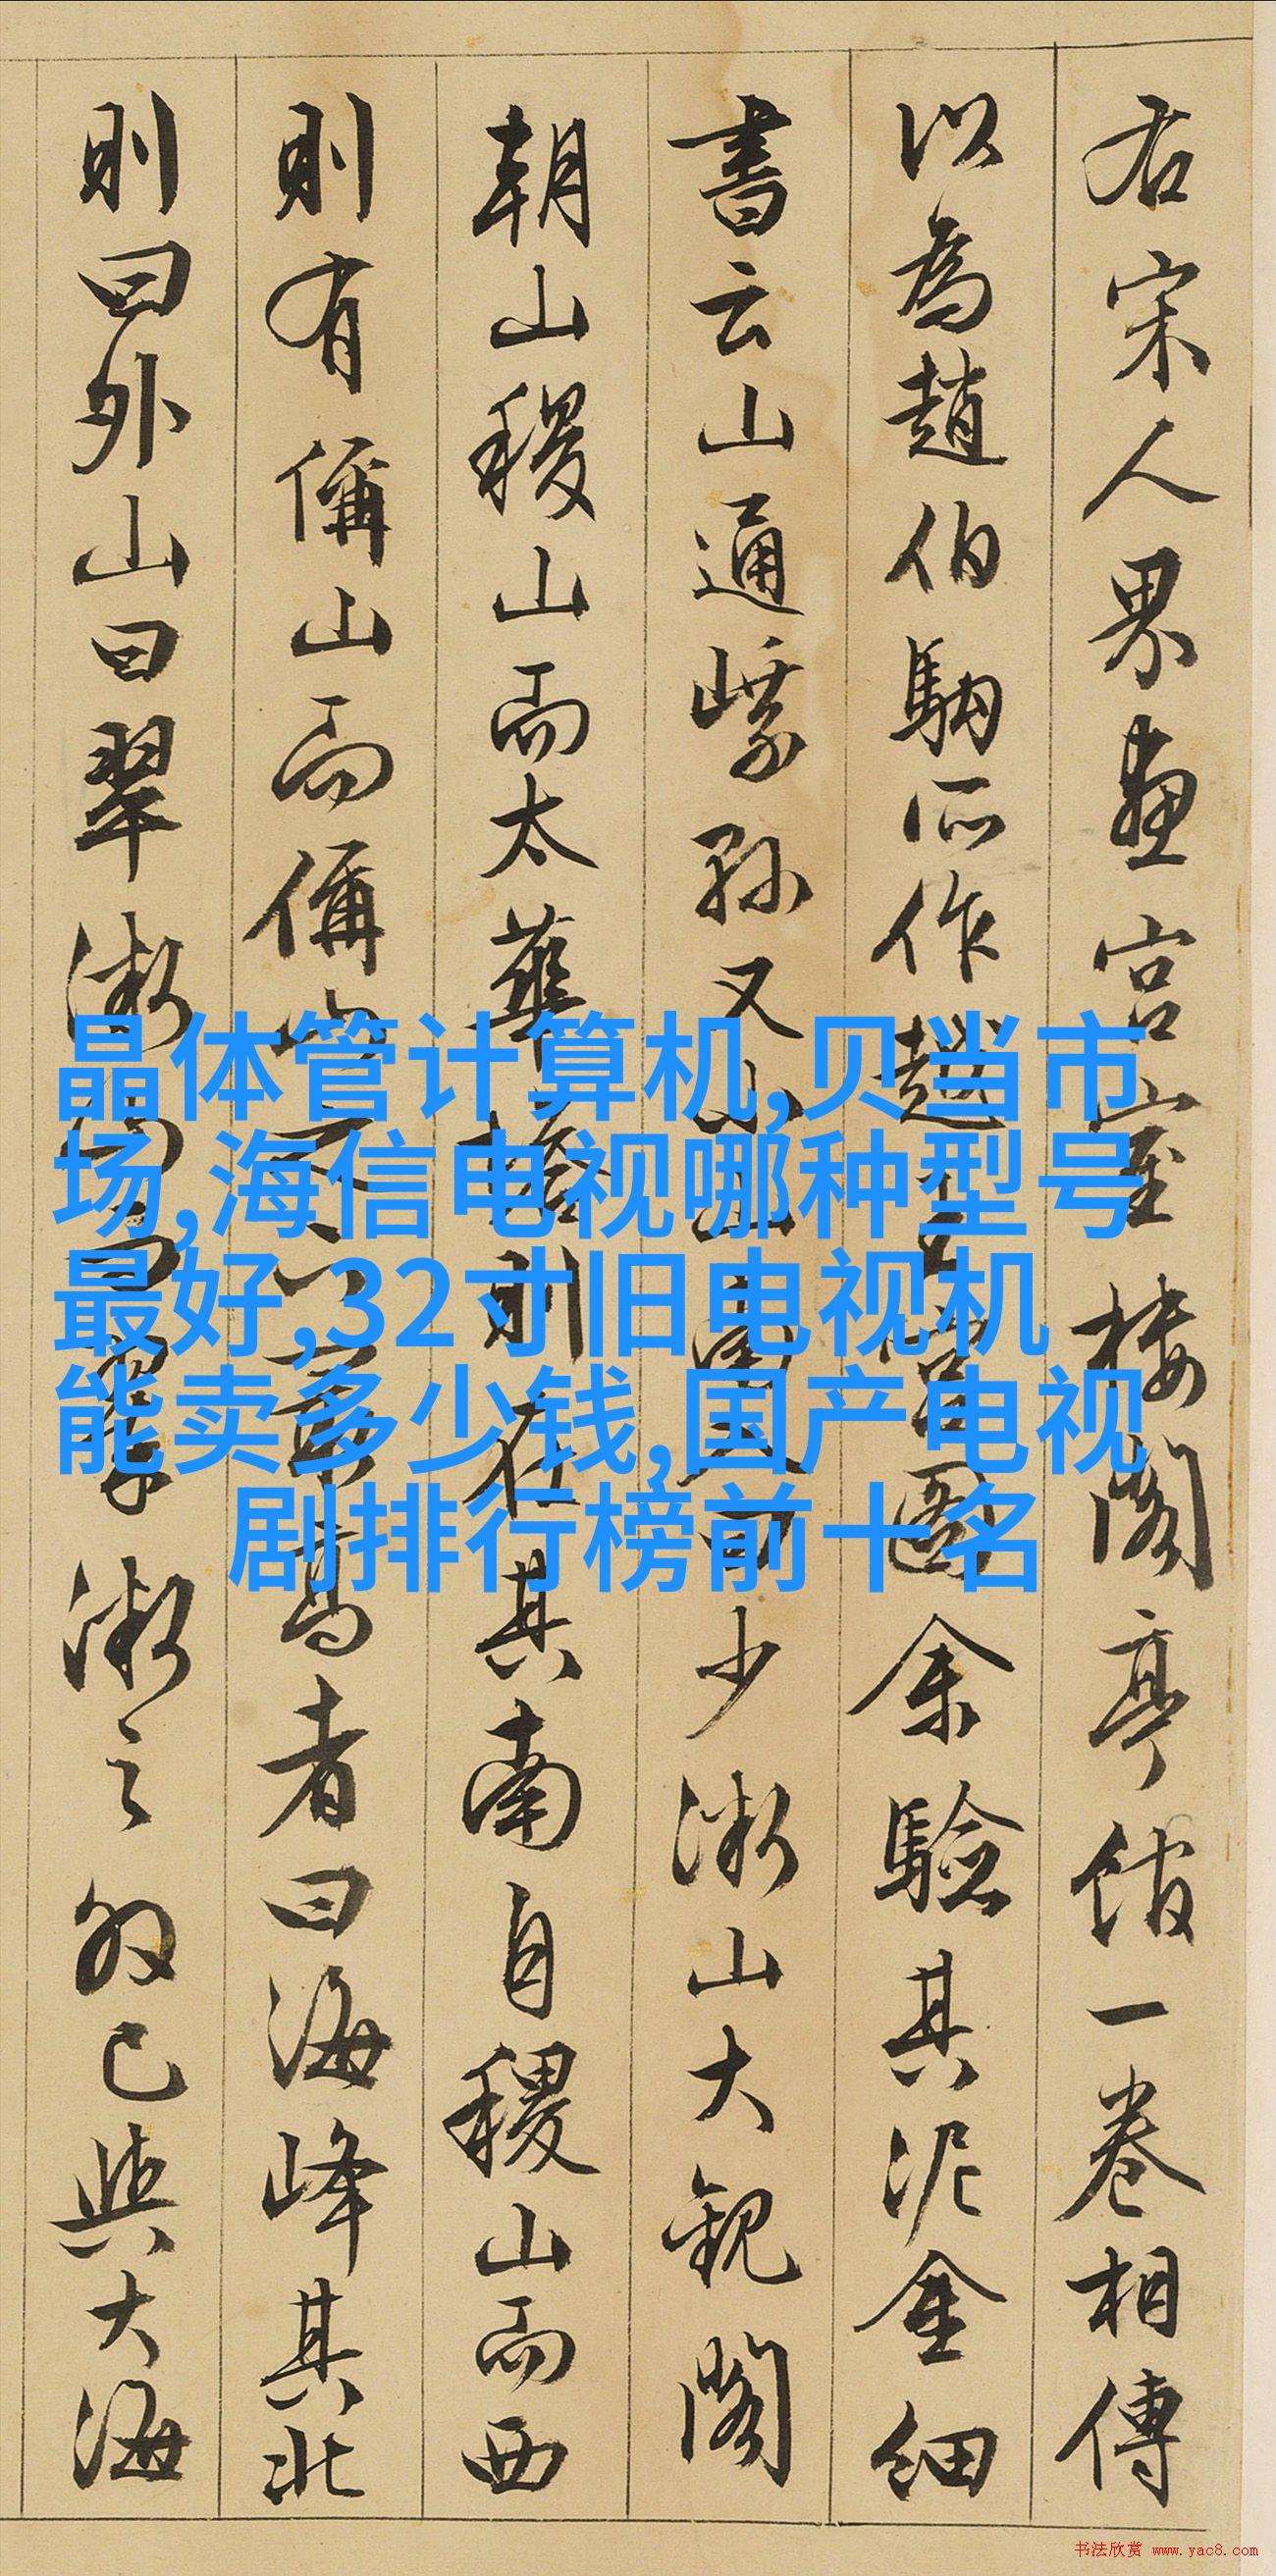 右宋人界畫宫室樓閣亭館一卷相傳
以為趙伯駒所作趙
書云山通
朝山稷山而太華
則有偁山而偁
則曰外山曰翠
晶体管计算机,贝当市
场,海信电视哪种型号
最好,32寸旧电视机
能卖多少钱,国产电视
剧排行榜前十名
圖余驗其泥金細
少漱山大観閣
其南自稷山而西
者曰海峰其北
漱之外已與大海
书法欣赏 www.yac8.com